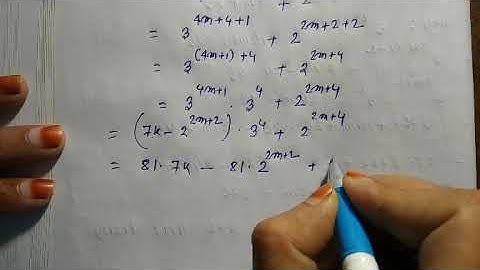 = 3^{4m+4+1} + 2^{2m+2+2}
= 3^{(4m+1)+4} + 2^{2m+4}
= 3^{4m+1} · 3^4 + 2^{2m+4}
= (7k - 2^{2m+2}) · 3^4 + 2^{2m+4}
= 81·7k - 81·2^{2m+2} +